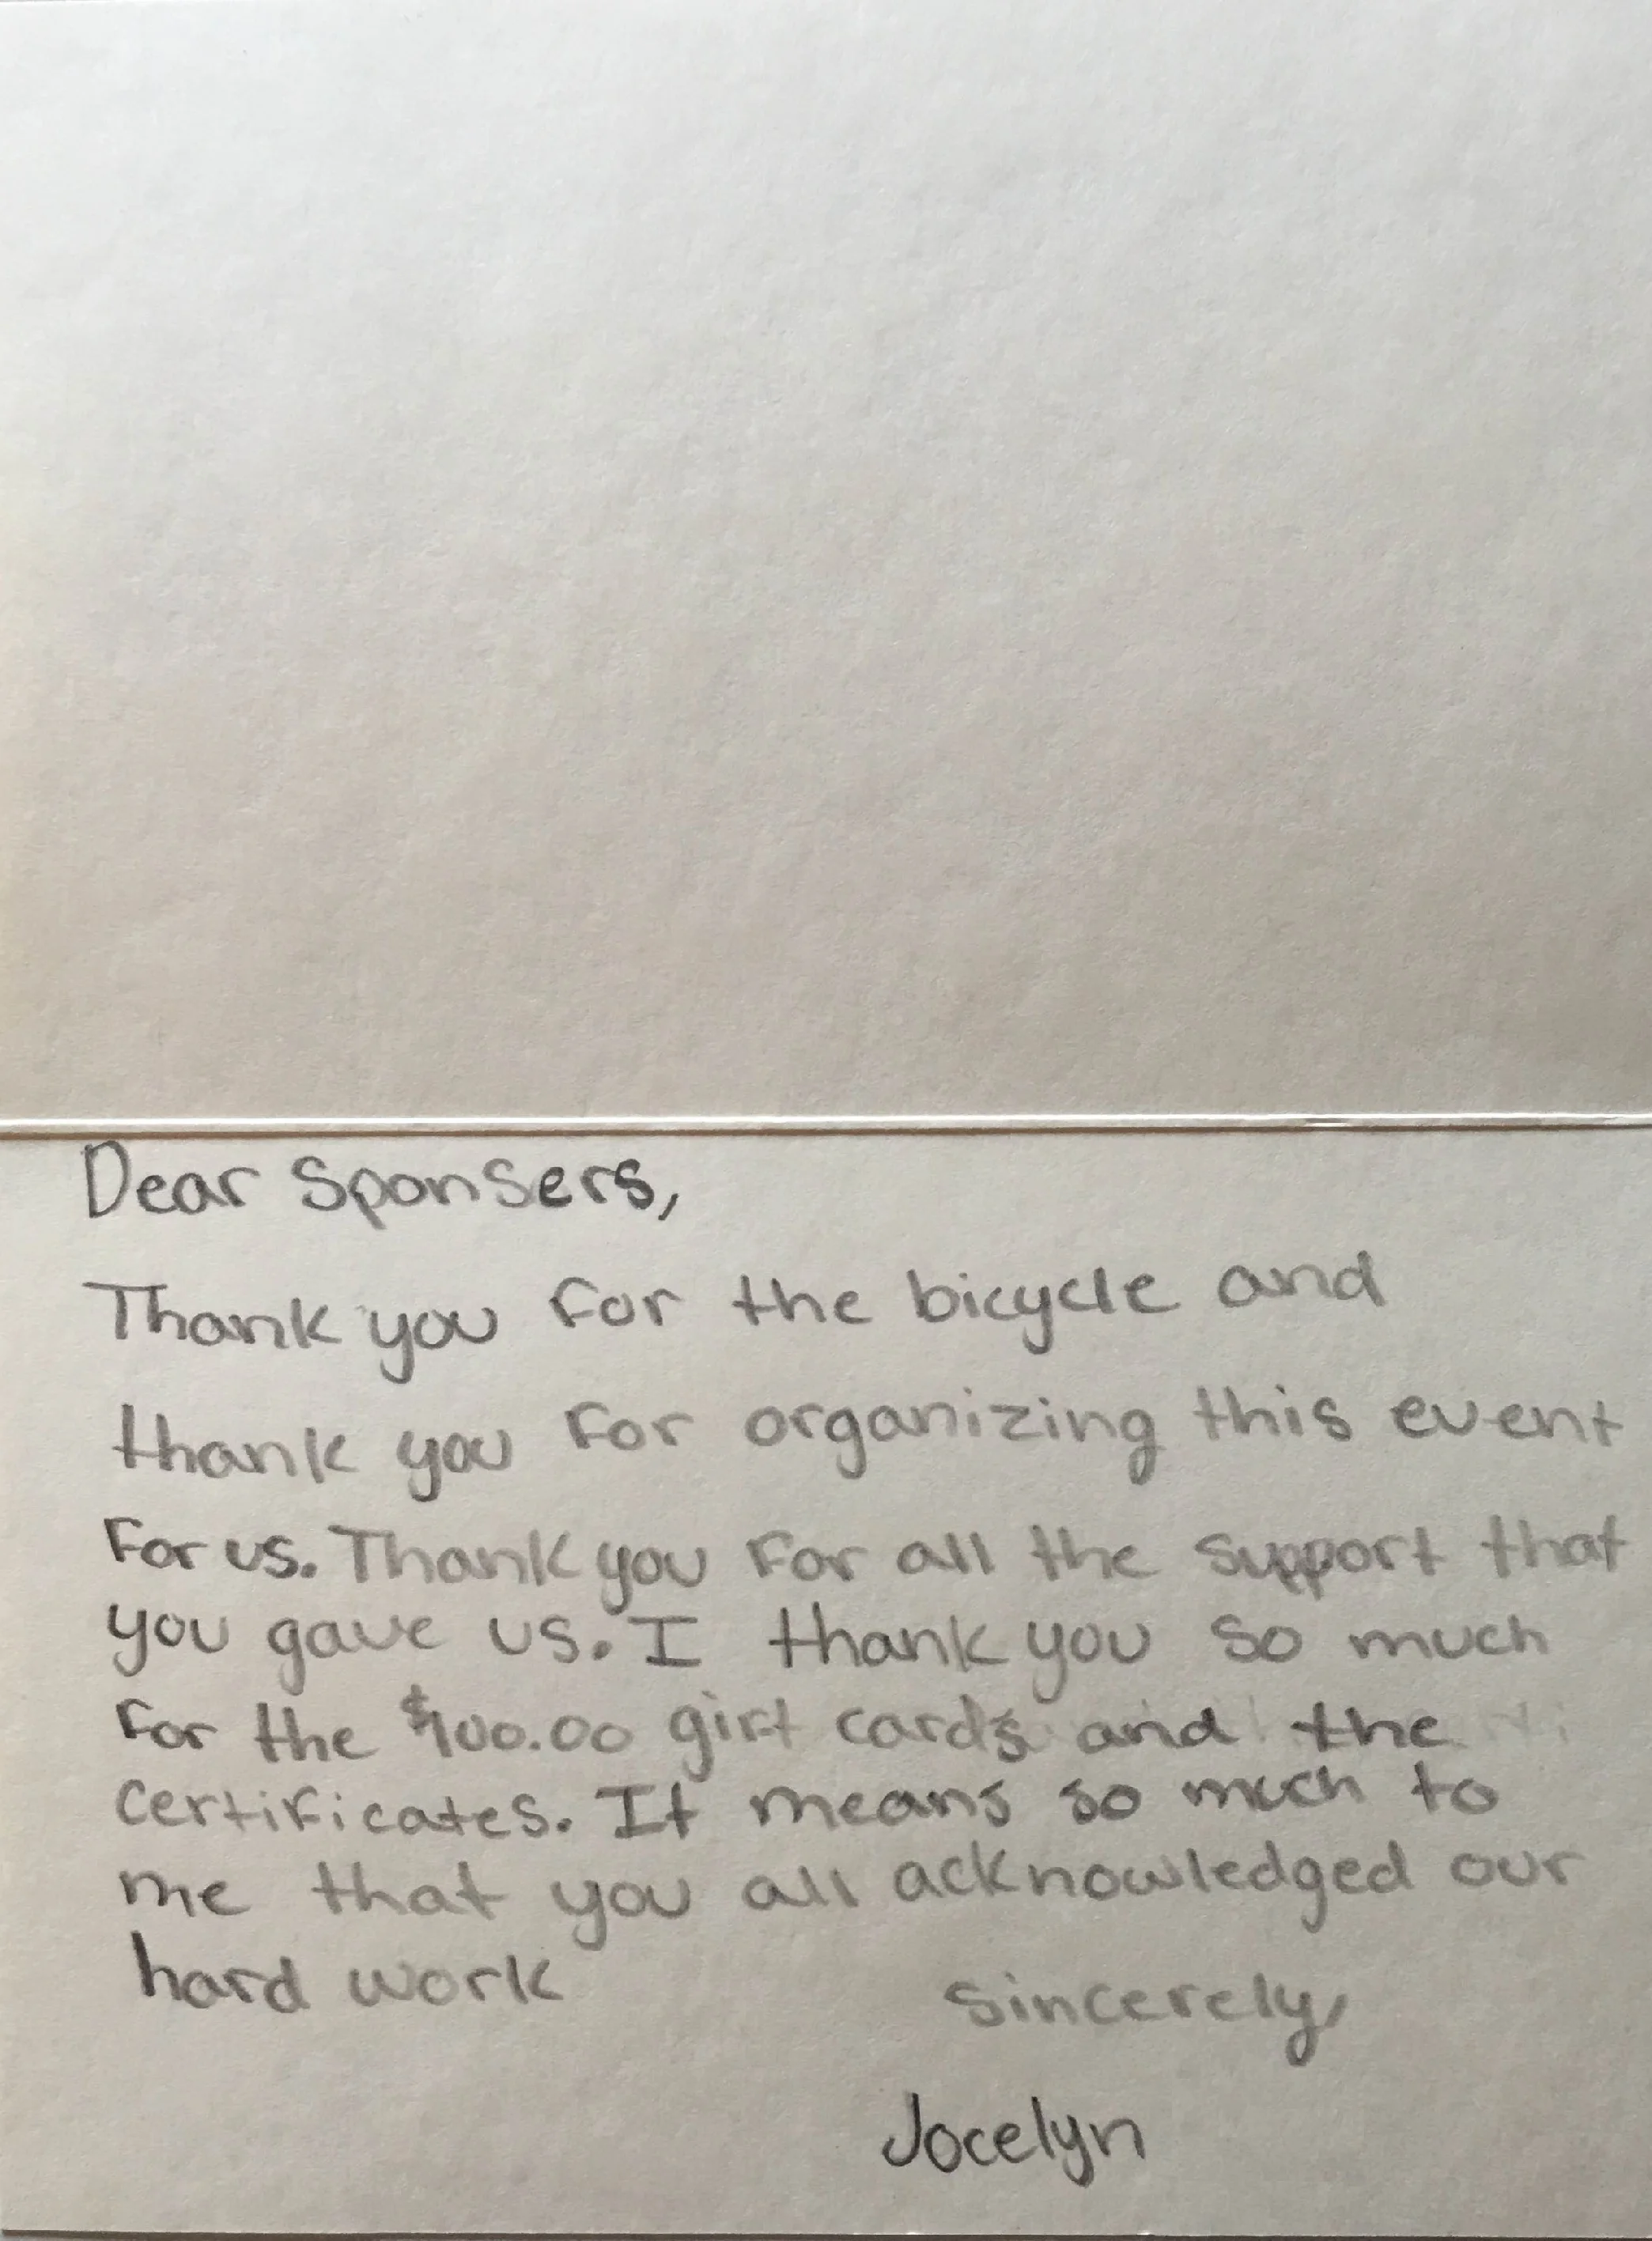 Dear Sponsers,
Thank you for the bicycle and
thank you for organizing this event
For us. Thank you for all the support that
you gave us. I thank you so much
for the $100.00 gift cards and the
certificates. It means so much to
me that you all acknowledged our
hard work
Sincerely,
Jocelyn